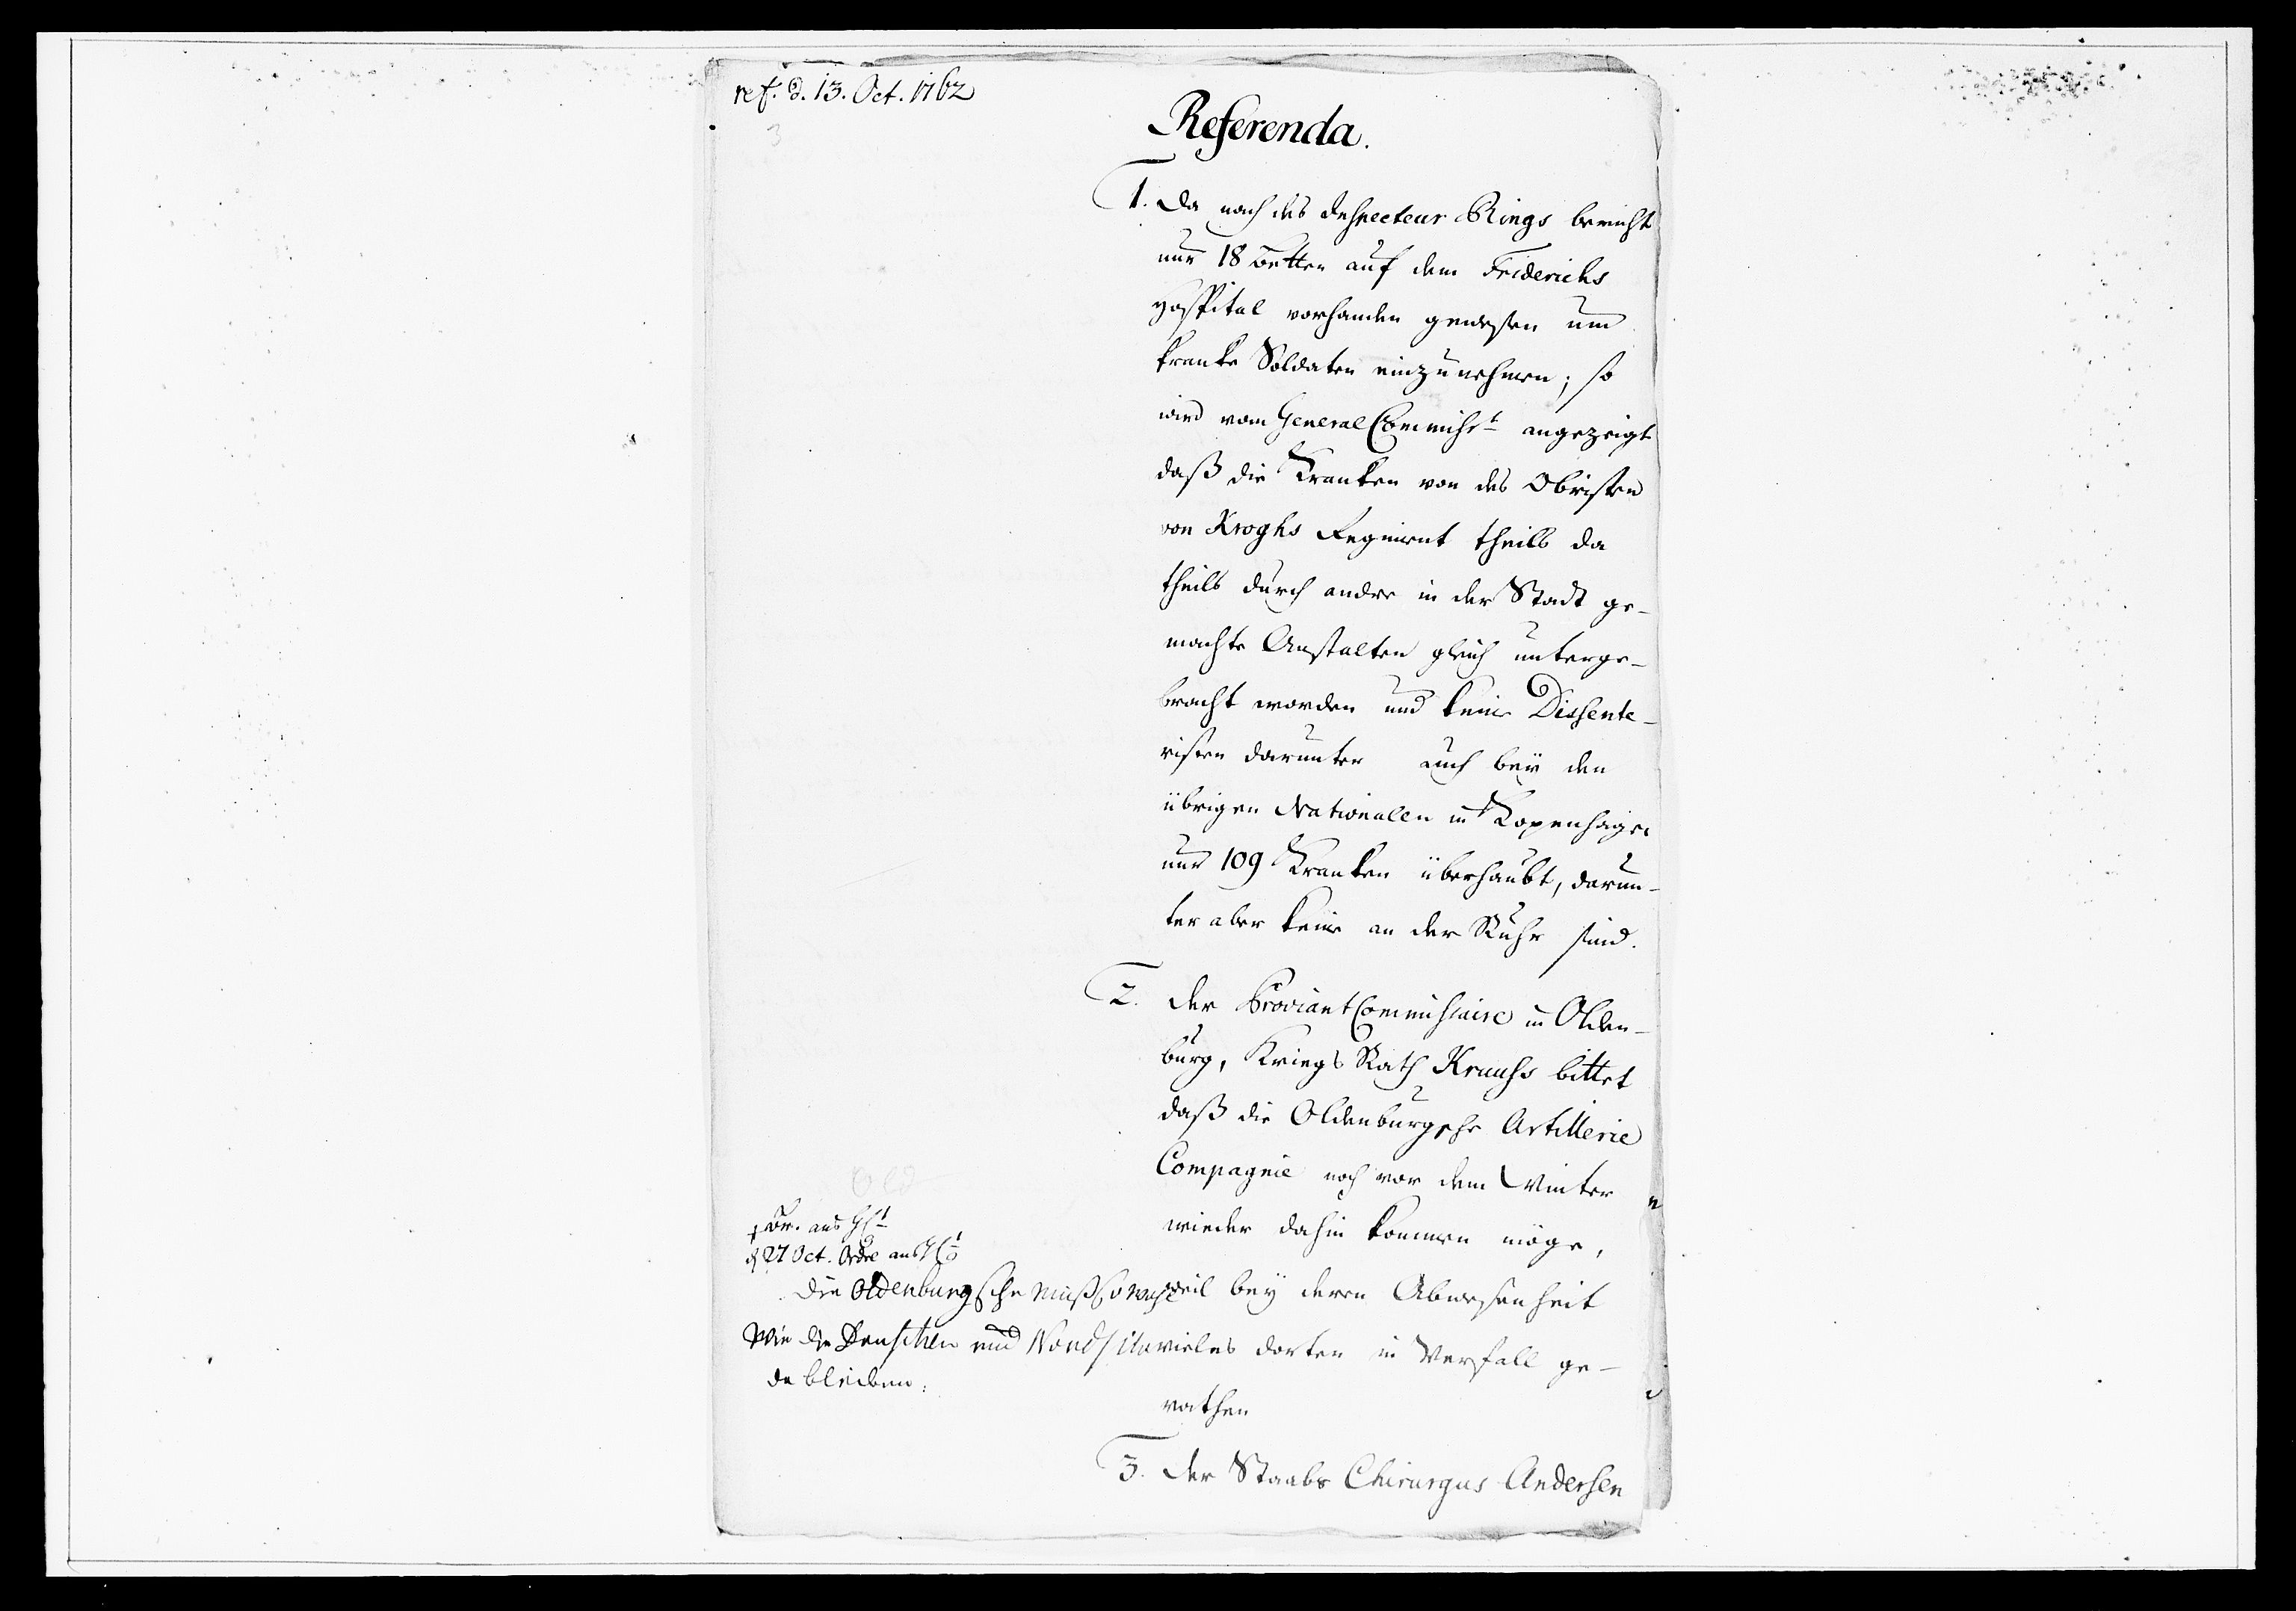 ref. d. 13. Oct. 1762
3
Referenda.
1. Da nach des Inspecteur Rings bericht
nur 18 Betten auf dem Friderichs
Hospital vorhanden gewesen um
kranke Soldaten einzunehmen; so
wird vom General Commisst angezeigt
daß die Kranken von des Obristen
von Kroghs Regiment theils da
theils durch andre in der Stadt ge-
machte Anstalten gleich unterge-
bracht worden und keine Dissente-
risten darunter auch beÿ den
übrigen Nationalen in Kopenhagen
nur 109 Kranken überhaubt, darun-
ter aber keine an der Ruhr sind.
2. Der Proviant Commissaire in Olden-
burg, Kriegs Rath Krauss bittet
daß die Oldenburgsche Artillerie
Compagnie noch vor dem Winter
wieder dahin kommen möge,
weil beÿ deren Abwesenheit
vieles dorten in Verfall ge-
rathen
3. Der Staabs Chirurgus Andersen
Old
d 27 Oct. Ordre
Die Oldenburgsche muß so wohl
wie die und
da bleiben.